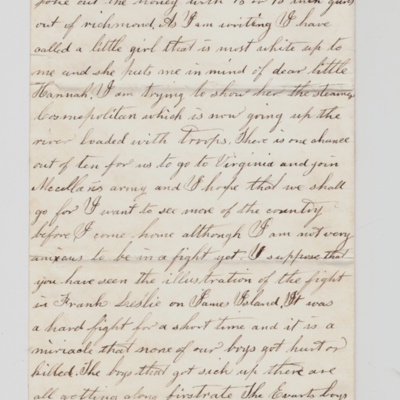 out the money with 13 or 15 inch guns
out of richmond. As I am writing I have
called a little girl that is most white up to
me and she puts me in mind of dear little
Hannah. I am trying to show her the steamer
Cosmopolitan which is now going up the
river loaded with Troops. There is one chance
out of ten for us to go to Virginia and join
Mccellans army and I hope that we shall
go for I want to see more of the country
before I come home although I am not very
anixous to be in a fight yet. I suppose that
you have seen the illustration of the fight
in Frank Leslie on James Island. It was
a hard fight for a short time and it is a
miriacle that none of our boys got hurt or
killed. The boys that got sick up there are
all getting along firstrate The Ewarts boys